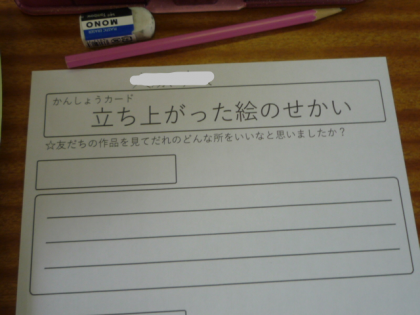 MONO
かんしょうカード
立ち上がった絵のせかい
☆友だちの作品を見てだれのどんな所をいいなと思いましたか？